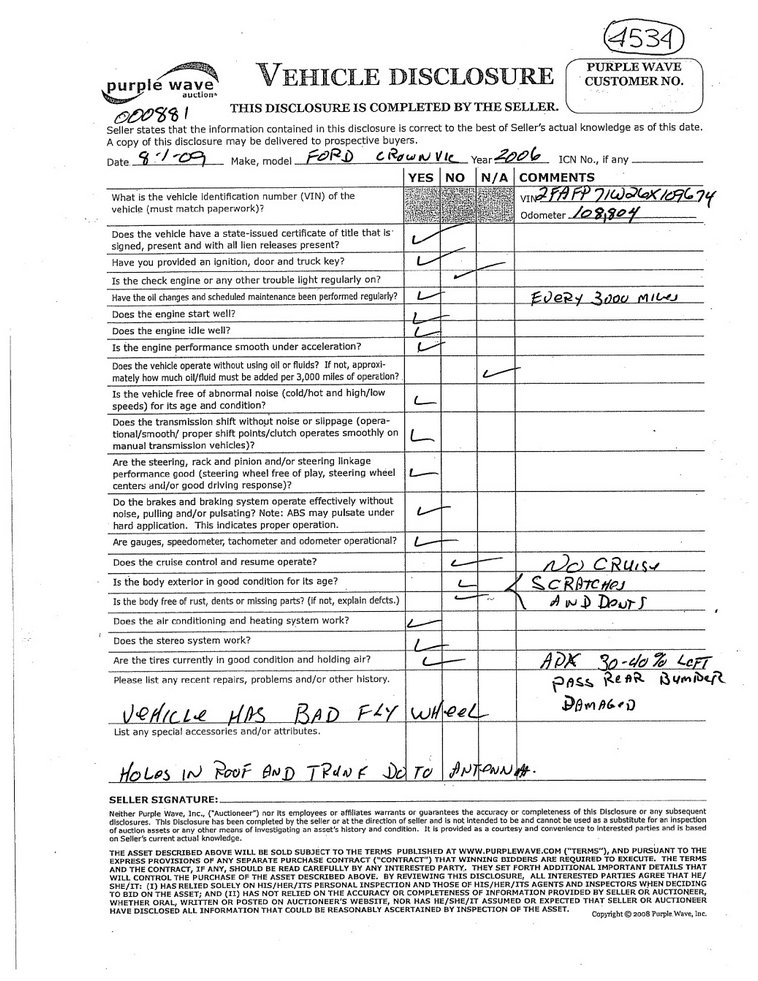 4534
purple wave
auction
VEHICLE DISCLOSURE
PURPLE WAVE
CUSTOMER NO.
000881
THIS DISCLOSURE IS COMPLETED BY THE SELLER.
Seller states that the information contained in this disclosure is correct to the best of Seller's actual knowledge as of this date.
A copy of this disclosure may be delivered to prospective buyers.
Date 8-1-09 Make, model FORD CROWN VIC Year 2006 ICN No., if any
YES NO N/A COMMENTS
What is the vehicle identification number (VIN) of the VIN 2FAFP71W26X109674
vehicle (must match paperwork)? Odometer 108,804
Does the vehicle have a state-issued certificate of title that is
signed, present and with all lien releases present?
Have you provided an ignition, door and truck key?
Is the check engine or any other trouble light regularly on?
Have the oil changes and scheduled maintenance been performed regularly? EVERY 3000 MILES
Does the engine start well?
Does the engine idle well?
Is the engine performance smooth under acceleration?
Does the vehicle operate without using oil or fluids? If not, approxi-
mately how much oil/fluid must be added per 3,000 miles of operation?
Is the vehicle free of abnormal noise (cold/hot and high/low
speeds) for its age and condition?
Does the transmission shift without noise or slippage (opera-
tional/smooth/ proper shift points/clutch operates smoothly on
manual transmission vehicles)?
Are the steering, rack and pinion and/or steering linkage
performance good (steering wheel free of play, steering wheel
centers and/or good driving response)?
Do the brakes and braking system operate effectively without
noise, pulling and/or pulsating? Note: ABS may pulsate under
hard application. This indicates proper operation.
Are gauges, speedometer, tachometer and odometer operational?
Does the cruise control and resume operate? NO CRUISE
Is the body exterior in good condition for its age? SCRATCHES
Is the body free of rust, dents or missing parts? (if not, explain defcts.) AND DENTS
Does the air conditioning and heating system work?
Does the stereo system work?
Are the tires currently in good condition and holding air? APX 30-40% LEFT
Please list any recent repairs, problems and/or other history. PASS REAR BUMPER
DAMAGED
VEHICLE HAS BAD FLY WHEEL
List any special accessories and/or attributes.
HOLES IN ROOF AND TRUNK DO TO ANTENNA.
SELLER SIGNATURE:
Neither Purple Wave, Inc., ("Auctioneer") nor its employees or affiliates warrants or guarantees the accuracy or completeness of this Disclosure or any subsequent
disclosures. This Disclosure has been completed by the seller or at the direction of seller and is not intended to be and cannot be used as a substitute for an inspection
of auction assets or any other means of investigating an asset's history and condition. It is provided as a courtesy and convenience to interested parties and is based
on Seller's current actual knowledge.
THE ASSET DESCRIBED ABOVE WILL BE SOLD SUBJECT TO THE TERMS PUBLISHED AT WWW.PURPLEWAVE.COM ("TERMS"), AND PURSUANT TO THE
EXPRESS PROVISIONS OF ANY SEPARATE PURCHASE CONTRACT ("CONTRACT") THAT WINNING BIDDERS ARE REQUIRED TO EXECUTE. THE TERMS
AND THE CONTRACT, IF ANY, SHOULD BE READ CAREFULLY BY ANY INTERESTED PARTY. THEY SET FORTH ADDITIONAL IMPORTANT DETAILS THAT
WILL CONTROL THE PURCHASE OF THE ASSET DESCRIBED ABOVE. BY REVIEWING THIS DISCLOSURE, ALL INTERESTED PARTIES AGREE THAT HE/
SHE/IT: (I) HAS RELIED SOLELY ON HIS/HER/ITS PERSONAL INSPECTION AND THOSE OF HIS/HER/ITS AGENTS AND INSPECTORS WHEN DECIDING
TO BID ON THE ASSET; AND (II) HAS NOT RELIED ON THE ACCURACY OR COMPLETENESS OF INFORMATION PROVIDED BY SELLER OR AUCTIONEER,
WHETHER ORAL, WRITTEN OR POSTED ON AUCTIONEER'S WEBSITE, NOR HAS HE/SHE/IT ASSUMED OR EXPECTED THAT SELLER OR AUCTIONEER
HAVE DISCLOSED ALL INFORMATION THAT COULD BE REASONABLY ASCERTAINED BY INSPECTION OF THE ASSET.
Copyright © 2008 Purple Wave, Inc.